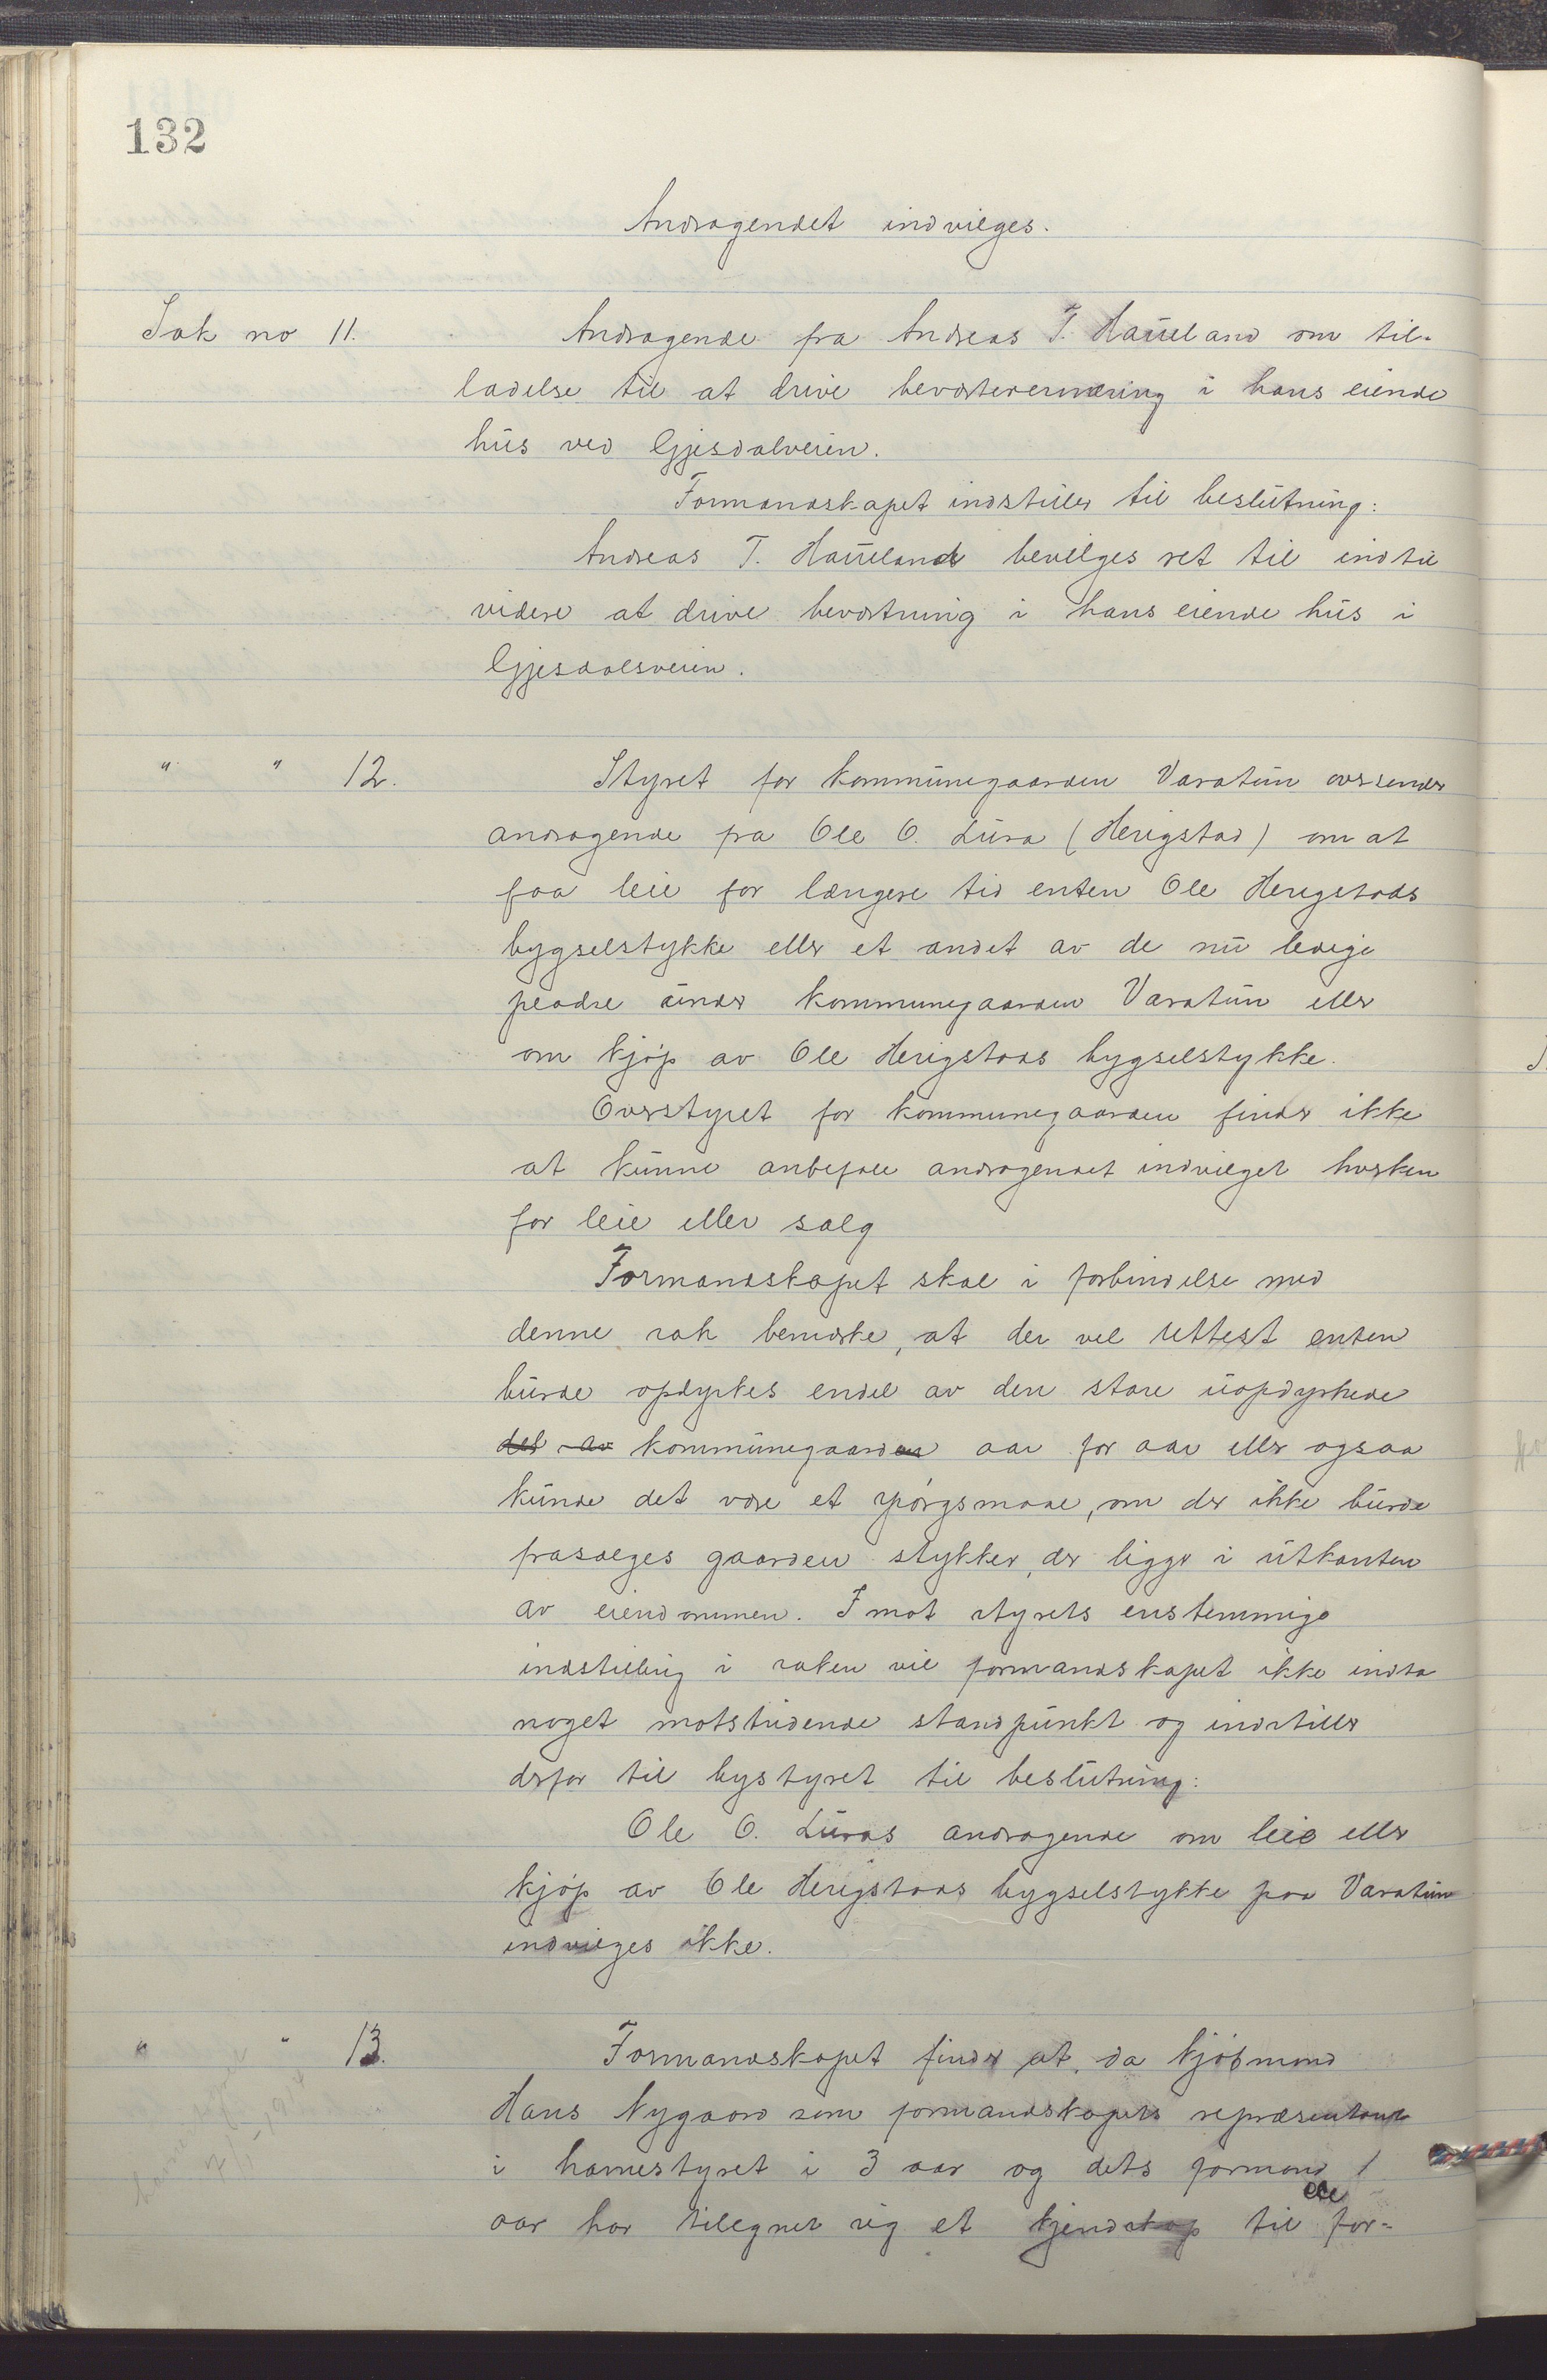 132
Andragendet indvilges.
Sak no 11. Andragende fra Andreas T. Haueland om til-
ladelse til at drive beværterernæring i hans eiende
hus ved Gjesdalveien.
Formandskapet indstiller til beslutning:
Andreas T. Haueland bevilges ret til indtil
videre at drive beværtning i hans eiende hus i
Gjesdalsveien.
" " 12. Styret for kommunegaarden Varatun oversender
andragende fra Ole O. Lura (Herigstad) om at
faa leie for længere tid enten Ole Herigstads
bygselstykke eller et andet av de nu ledige
pladse under kommunegaarden Varatun eller
om kjøp av Ole Herigstads bygselstykke.
Overstyret for kommunegaarden finder ikke
at kunne anbefale andragendet indvilget hverken
for leie eller salg
Formandskapet skal i forbindelse med
denne sak bemerke, at der vel rettest enten
burde opdyrkes endel av den store uopdyrkede
del av kommunegaarden aar for aar eller ogsaa
kunde det være et spørgsmaal, om der ikke burde
frasælges gaarden stykker, der ligger i utkanten
av eiendommen. Imot styrets enstemmige
indstilling i saken vil formandskapet ikke indta
noget motstridende standpunkt og indstiller
derfor til bystyret til beslutning:
Ole O. Luras andragende om leie eller
kjøp av Ole Herigstads bygselstykke paa Varatun
indvilges ikke.
" " 13. Formandskapet finder at, da kjøbmand
Hans Nygaard som formandskapets repræsentant
i havnestyret i 3 aar og dets formand 1
aar har tilegnet sig et kjendskap til for-